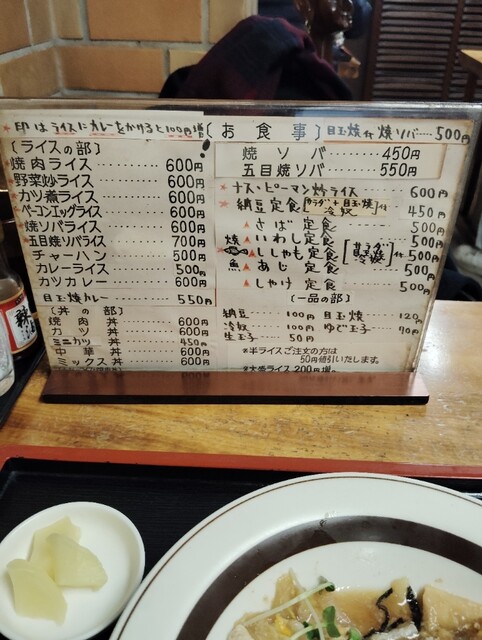 ★印はライスにカレーをかけると100円増
(ライスの部)
★焼肉ライス 600円
★野菜炒ライス 600円
★カツ煮ライス 600円
★ベーコンエッグライス 600円
★焼ソバライス 600円
★五目焼ソバライス 700円
チャーハン 500円
カレーライス 500円
カツカレー 600円
目玉焼カレー 550円
(丼の部)
焼肉丼 600円
カツ丼 600円
ミニカツ丼 450円
中華丼 600円
ミックス丼 600円
(お食事)
目玉焼付焼ソバ 500円
焼ソバ 450円
五目焼ソバ 550円
★ナス・ピーマン炒ライス 600円
★納豆定食 [サラダ+目玉焼 冷奴]付 450円
焼魚
▲さば定食
▲いわし定食
▲ししゃも定食
▲あじ定食
▲しゃけ定食
付 500円
(一品の部)
納豆 100円 目玉焼 120円
冷奴 100円 ゆで玉子 70円
生玉子 50円
※半ライスご注文の方は
50円値引いたします。
※大盛ライス200円増